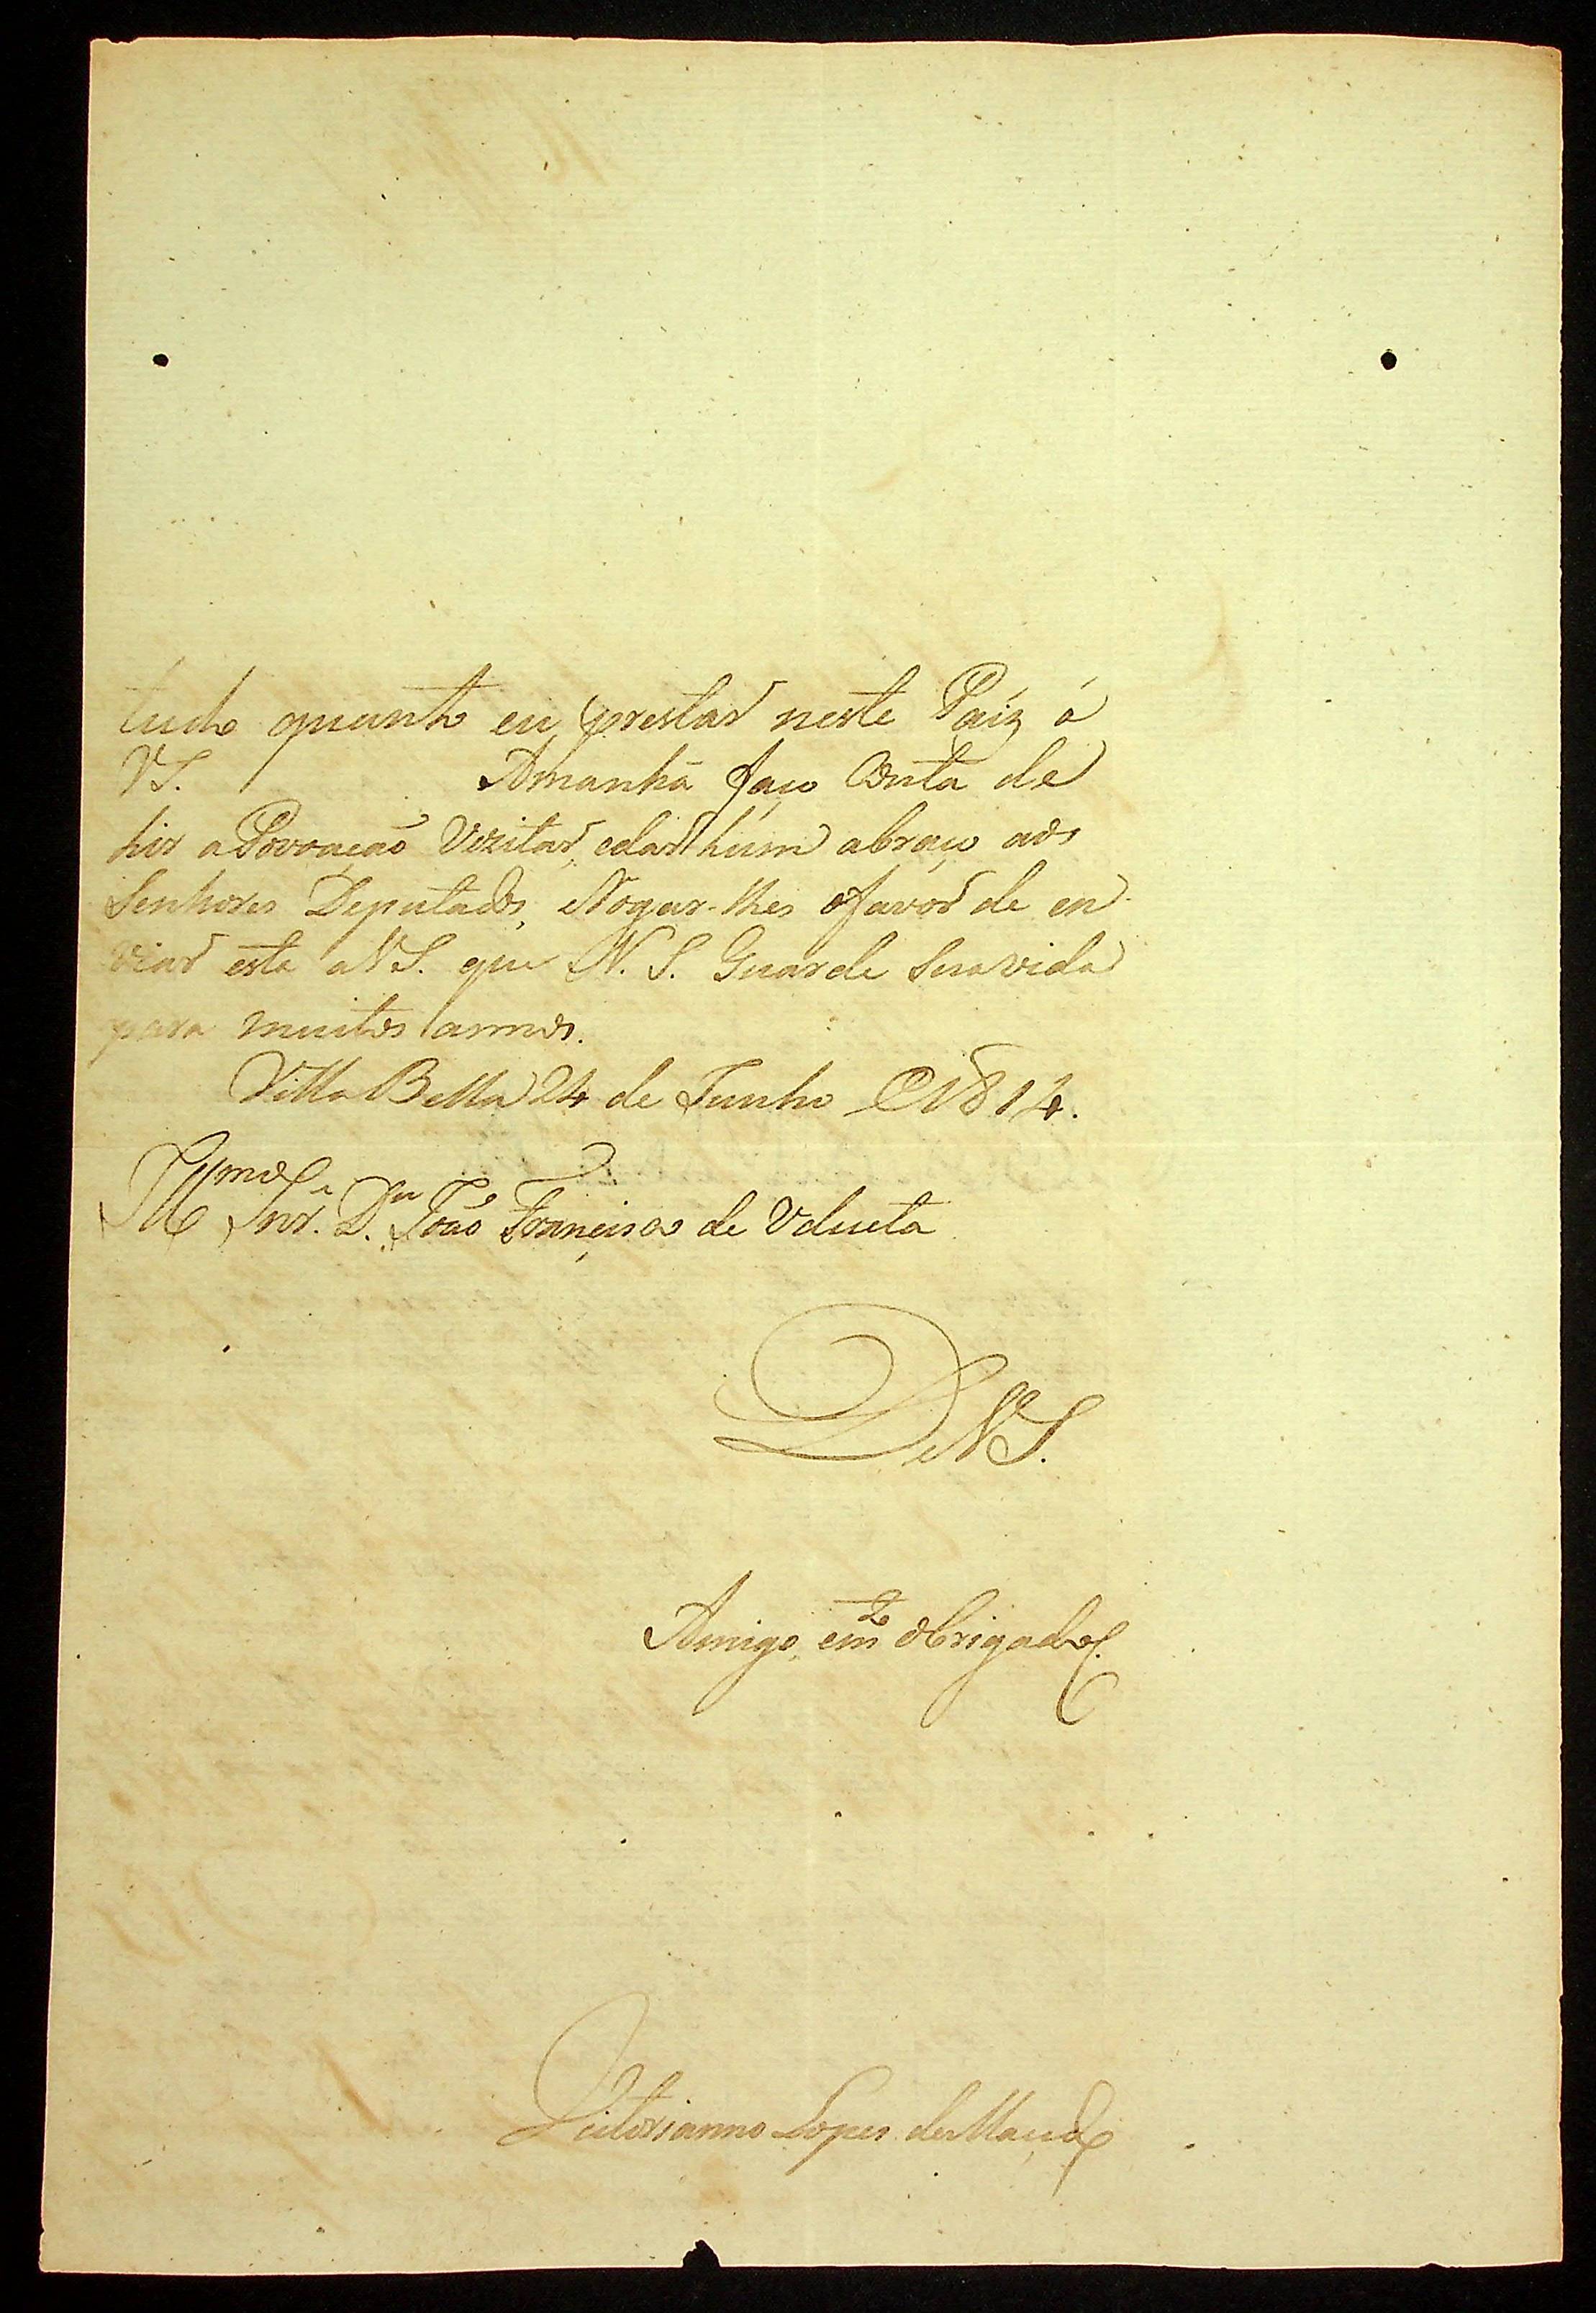 tudo quanto eu prestar neste Paiz á
VS. Amanhã faço Conta de
hir a Povoação Vezitar, edar húm abraço aos
Senhores Deputados, eRogar-lhes ofavor de en-
viar esta aVS. que N. S. Guarde Sua vida
para muitos annos.
Villa Bella 24 de Junho 1814.
Illmo Snr. Dn João Francisco de Udaeta
DeVS.
Amigo, emto obrigado
Victorianno Lopes de